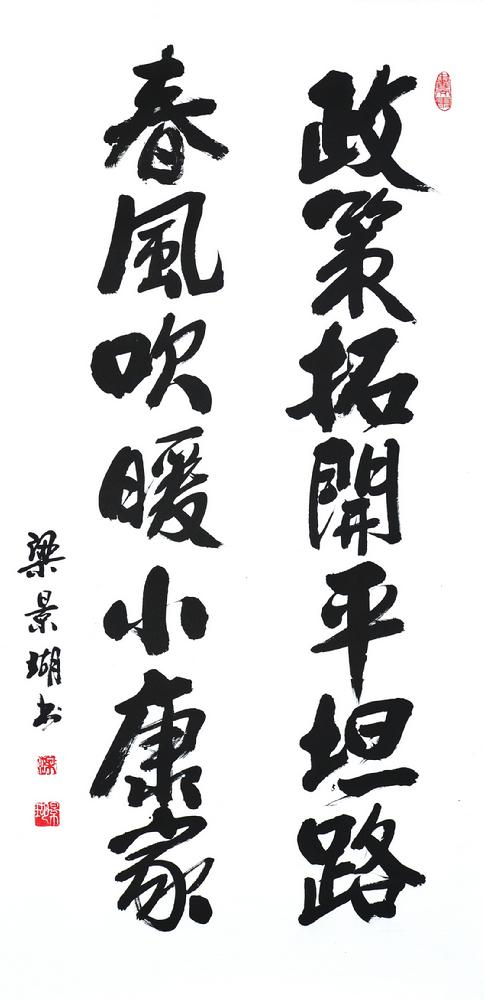 政策拓開平坦路
春風吹暖小康家
梁景瑚书